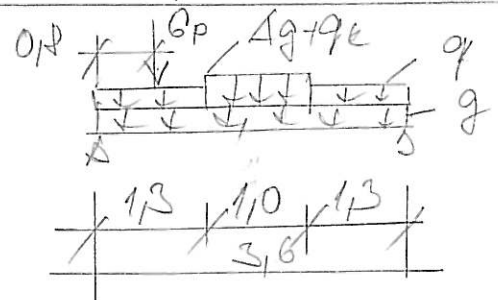 0,8 Gp Δg+qk q
g
A
1,3 1,0 1,3
3,6